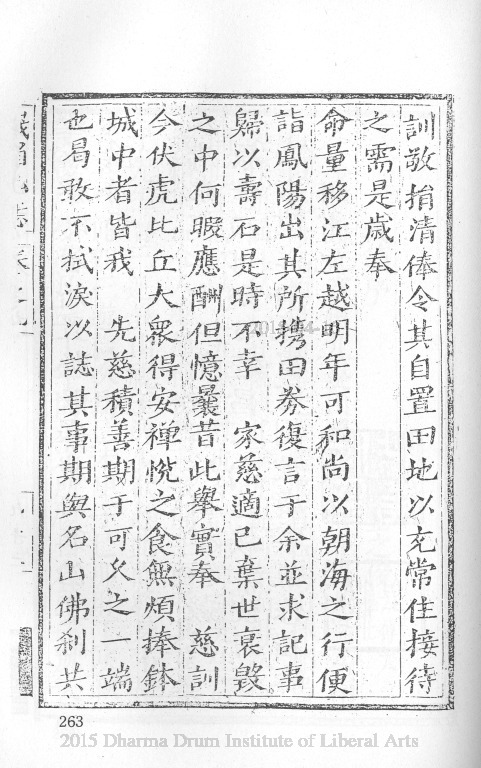 訓敬捐清俸令其自置田地以充常住接待
之需是歲奉
命量移江左越明年可和尚以朝海之行便
詣鳳陽出其所携田券復言于余並求記事
歸以壽石是時不幸　家慈適已棄世哀毀
之中何暇應酬但憶曩昔此舉實奉　慈訓
今伏虎比丘大衆得安禪悅之食無煩捧鉢
城中者皆我　先慈積善期于可久之一端
也曷敢不拭淚以誌其事期與名山佛刹共
263
2015 Dharma Drum Institute of Liberal Arts